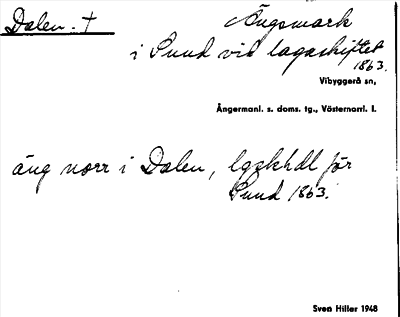 Dalen. †
Ängsmark
i Sund vid lagaskiftet
1863.
Vibyggerå sn,
Ångermanl. s. doms. tg., Västernorrl. l.
äng norr i Dalen, lgskhdl för
Sund 1863.
Sven Hiller 1948